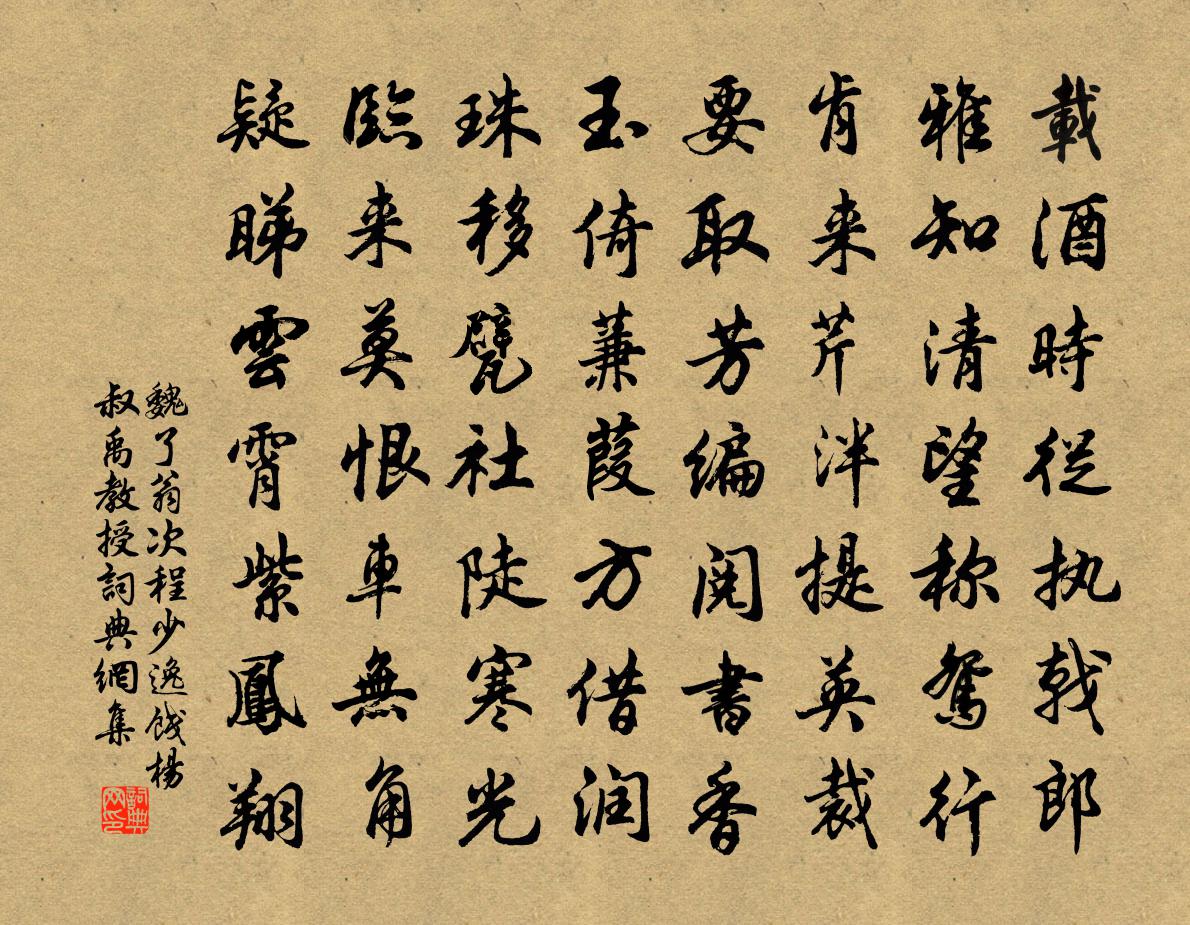 載酒時從执戟郎
雅知清望称鴛行
肯来芹泮提英裁
要取芳编閱書香
玉倚蒹葭方借润
珠移甓社陡寒光
臨来莫恨車無角
疑睇雲霄紫鳳翔
魏了翁次程少逸餞楊
叔禹教授詞典網集
詞典
网印